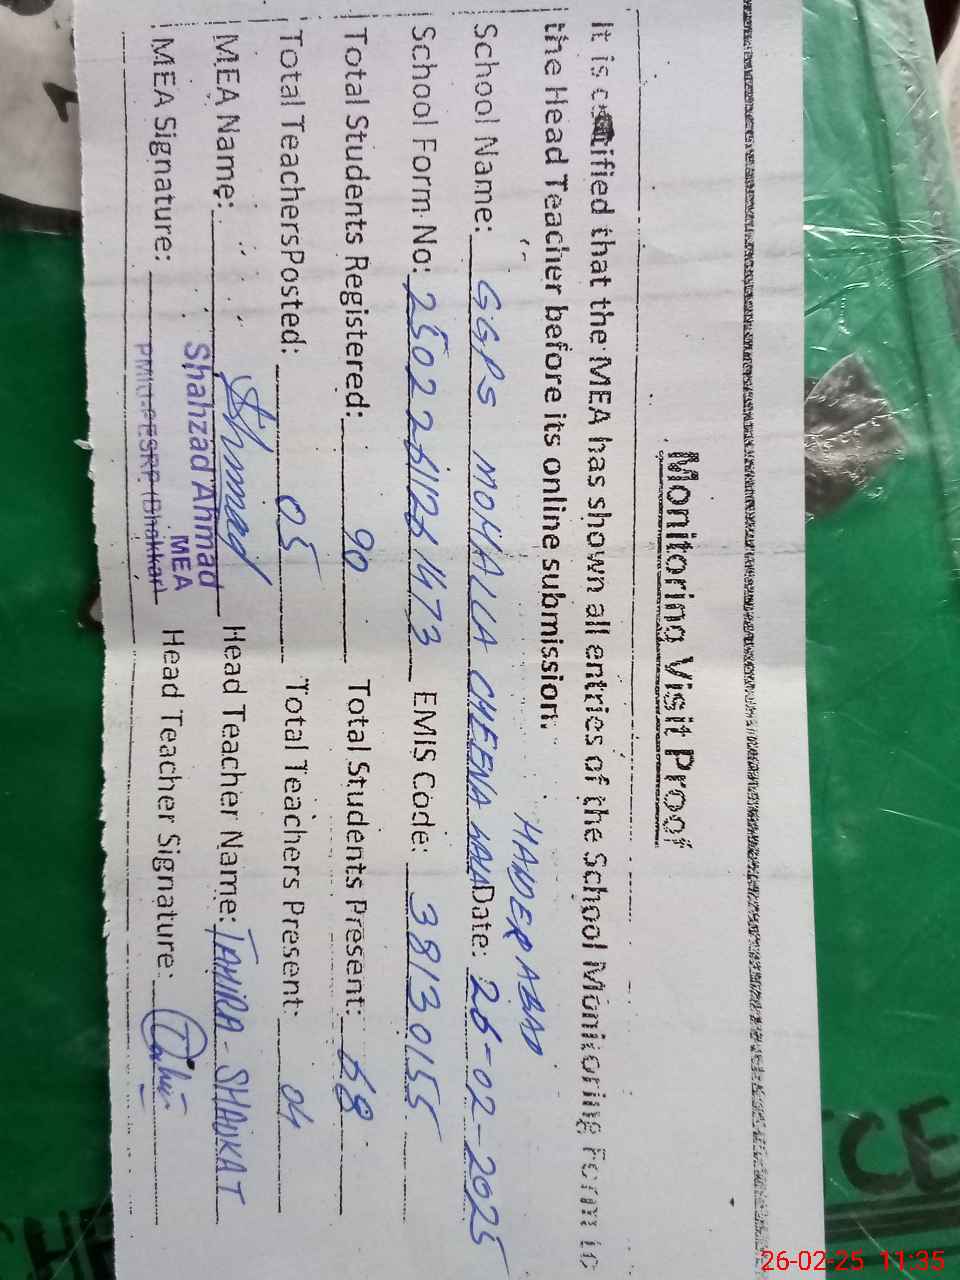 Monitoring Visit Proof
It is certified that the MEA has shown all entries of the School Monitoring Form to
the Head Teacher before its online submission.
HADER ABAD
School Name: GGPS MOHALLA CHEENA Date: 26-02-2025
School Form No: 25022611261473 EMIS Code: 38130155
Total Students Registered: 90 Total Students Present: 68
Total TeachersPosted: 05 Total Teachers Present: 04
MEA Name: Ahmad Head Teacher Name: TAHIRA - SHAUKAT
Shahzad Ahmad
MEA
MEA Signature: PMIU-PESRP (Bhakkar) Head Teacher Signature:
CE
26-02-25 11:35